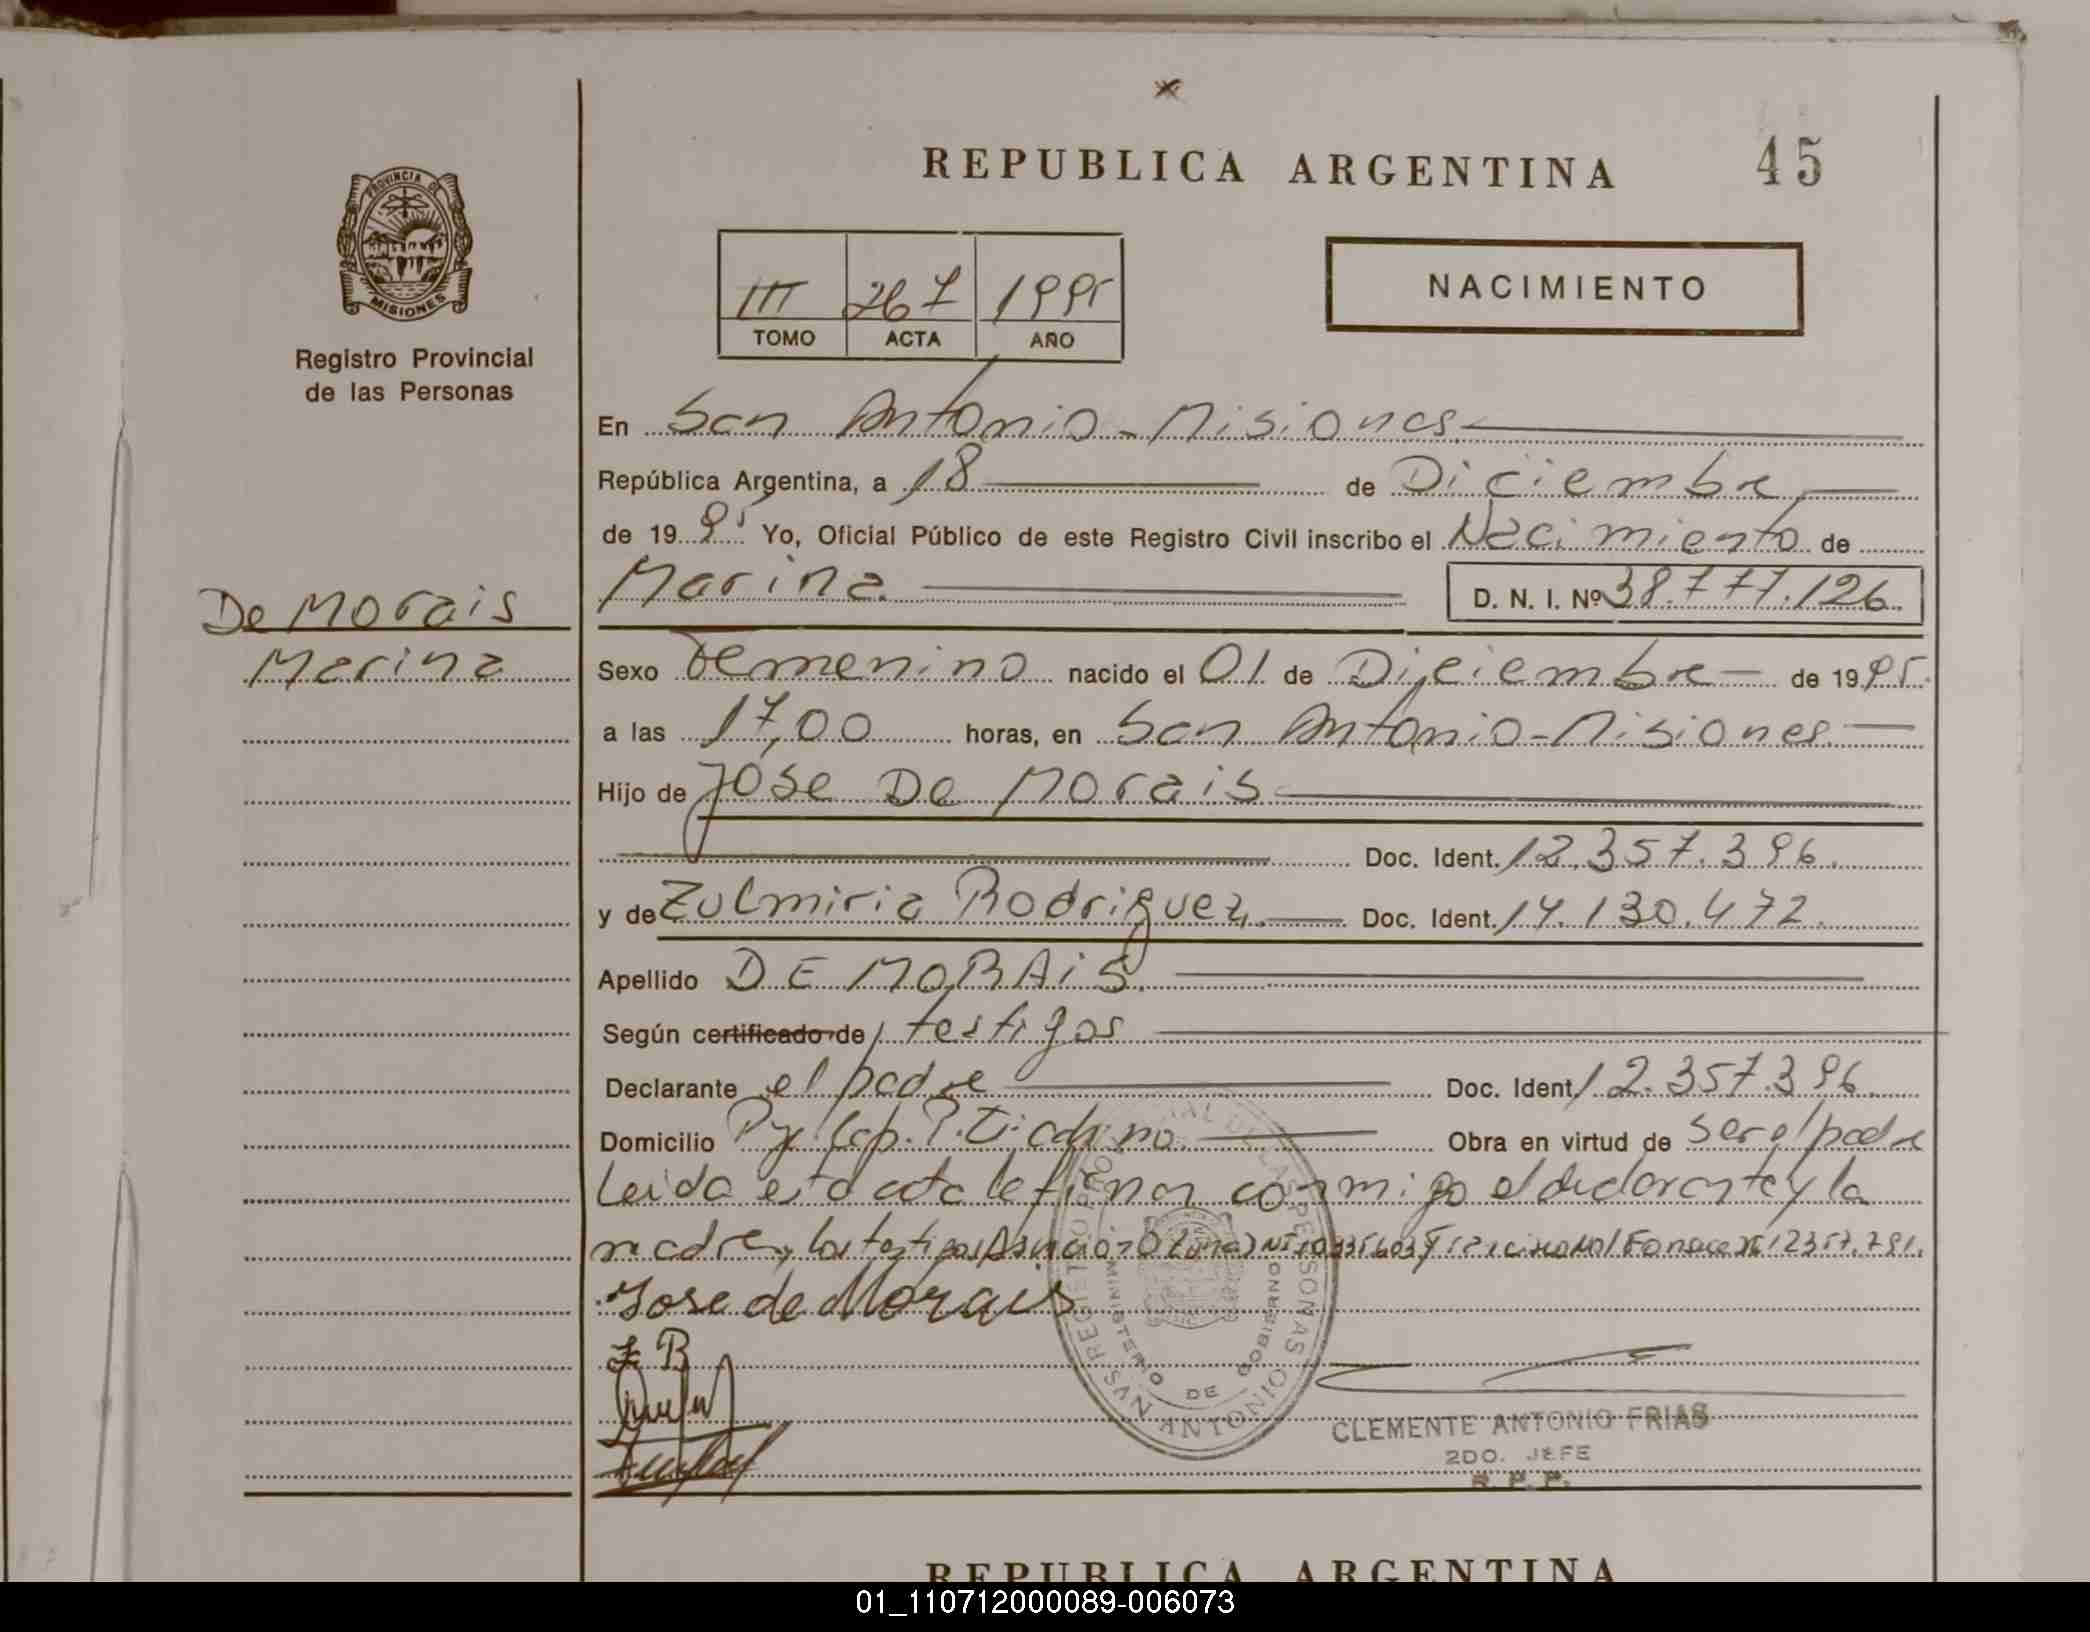 REPUBLICA ARGENTINA 45
PROVINCIA DE
MISIONES
Registro Provincial
de las Personas
III 267 1995
TOMO ACTA AÑO
NACIMIENTO
En San Antonio - Misiones
República Argentina, a 18 de Diciembre
de 1995 Yo, Oficial Público de este Registro Civil inscribo el Nacimiento de
Marina D. N. I. Nº 38.777.126
De Morais
Marina
Sexo Femenino nacido el 01 de Diciembre de 1995
a las 17,00 horas, en San Antonio - Misiones
Hijo de Jose De Morais
Doc. Ident. 12.357.396.
y de Zulmiria Rodriguez Doc. Ident. 14.130.472.
Apellido DE MORAIS
Según certificado de testigos
Declarante el padre Doc. Ident 12.357.396
Domicilio Obra en virtud de ser el padre
Leida esta acta la firman conmigo el declarante y la
madre, los testigos 12357.791.
Jose de Morais
Z B
REGISTRO PROVINCIAL DE LAS PERSONAS
MINISTERIO DE GOBIERNO
SAN ANTONIO
CLEMENTE ANTONIO FRIAS
2DO. JEFE
R. P. P.
REPUBLICA ARGENTINA
01_110712000089-006073